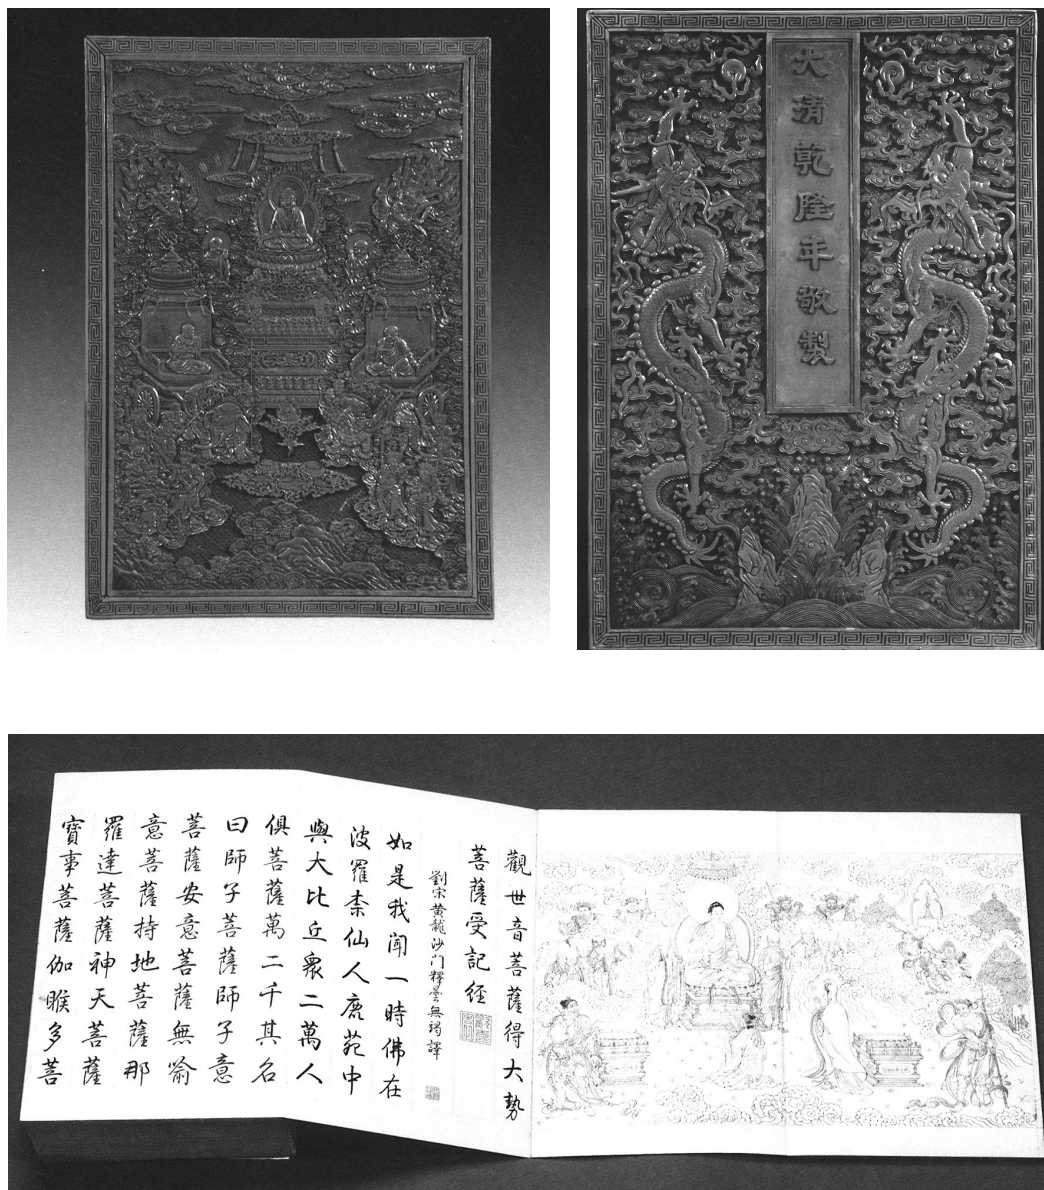 大清乾隆年敬製
觀世音菩薩得大勢
菩薩受記經
劉宋黄龍沙门釋曇無竭譯
如是我闻一時佛在
波羅柰仙人鹿苑中
與大比丘眾二萬人
俱菩薩萬二千其名
曰師子菩薩師子意
菩薩安意菩薩無喻
意菩薩持地菩薩那
羅達菩薩神天菩薩
寶事菩薩伽睺多菩